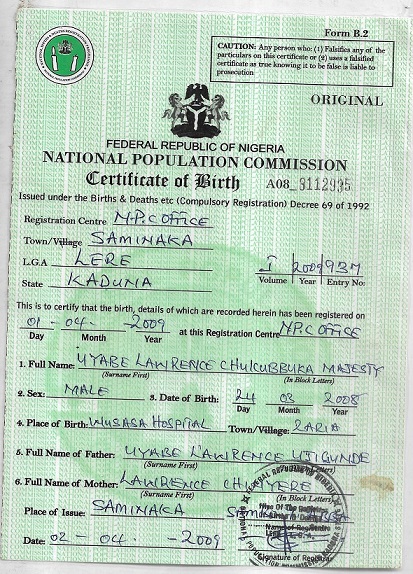 Form B.2
CAUTION: Any person who: (1) Falsifies any of the
particulars on this certificate or (2) uses a falsified
certificate as true knowing it to be false is liable to
prosecution
ORIGINAL
FEDERAL REPUBLIC OF NIGERIA
NATIONAL POPULATION COMMISSION
Certificate of Birth A08 9112995
Issued under the Births & Deaths etc (Compulsory Registration) Decree 69 of 1992
Registration Centre N.P.C OFFICE
Town/Village SAMINAKA
L.G.A LERE
I 2009 937
State KADUNA
Volume Year Entry No:
This is to certify that the birth, details of which are recorded herein has been registered on
01 - 04 - 2009 at this Registration Centre N.P.C OFFICE
Day Month Year
1. Full Name: UYABE LAWRENCE CHUKUBBUKA MAJESTY
(Surname First) (In Block Letters)
2. Sex: MALE 3. Date of Birth: 24 03 2008
Day Month Year
4. Place of Birth: WUSASA HOSPITAL Town/Village: ZARIA
5. Full Name of Father: UYABE LAWRENCE UJIGUNDE
(Surname First) (In Block Letters)
6. Full Name of Mother: LAWRENCE CHINYERE
(Surname First) (In Block Letters)
Place of Issue: SAMINAKA
Date: 02 - 04 - 2009
Signature of Registrar